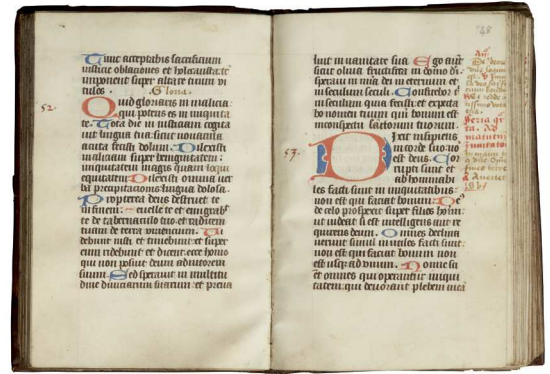 Tunc acceptabis sacrificium
iusticie oblaciones et holocausta: tc̄
imponent super altare tuum vi
tulos . Gloria .
52. Quid gloriaris in malicia
qui potens es in iniquita
te . Tota die iniusticiam cogita
uit lingua tua: sicut nouacula
acuta fecisti dolum . Dilexisti
maliciam super benignitatem :
iniquitatem magis quam loqui
equitatem Dilexisti omnia uer
ba precipitacionis: lingua dolosa .
Propterea deus destruet te
in finem : euellet te et emigrab̄
te de tabernaculo tuo et radicem
tuam de terra viuencium . Vi
debunt iusti et timebunt et super
eum ridebunt et dicent: ecce homo
qui non posuit deum adiutorem
suum . Sed sperauit in multitu
dine diuiciarum suarum : et preua
48
luit in vanitate sua Ego autē
sicut oliua fructifera in domo di
speraui in mīa dei in eternum et
in seculum seculi . Confitebor t̄
in seculum quia fecisti: et expecta
bo nomen tuum qm̄ bonum est
in conspectu sanctorum tuorum .
53. Dixit insipiens
in corde suo: nō
est deus . Cor
rupti sunt et
abhominabi
les facti sunt in iniquitatibus :
non est qui faciat bonum . De⁹
de celo prospexit super filios hom̄:
ut uideat si est intelligens aut re
quirens deum . Omnes declina
uerunt simul inutiles facti sunt:
non est qui faciat bonum non
est usq; ad vnum . Nonne sci
ēt omnes qui operantur iniqui
tatem: qui deuorant plebem meā